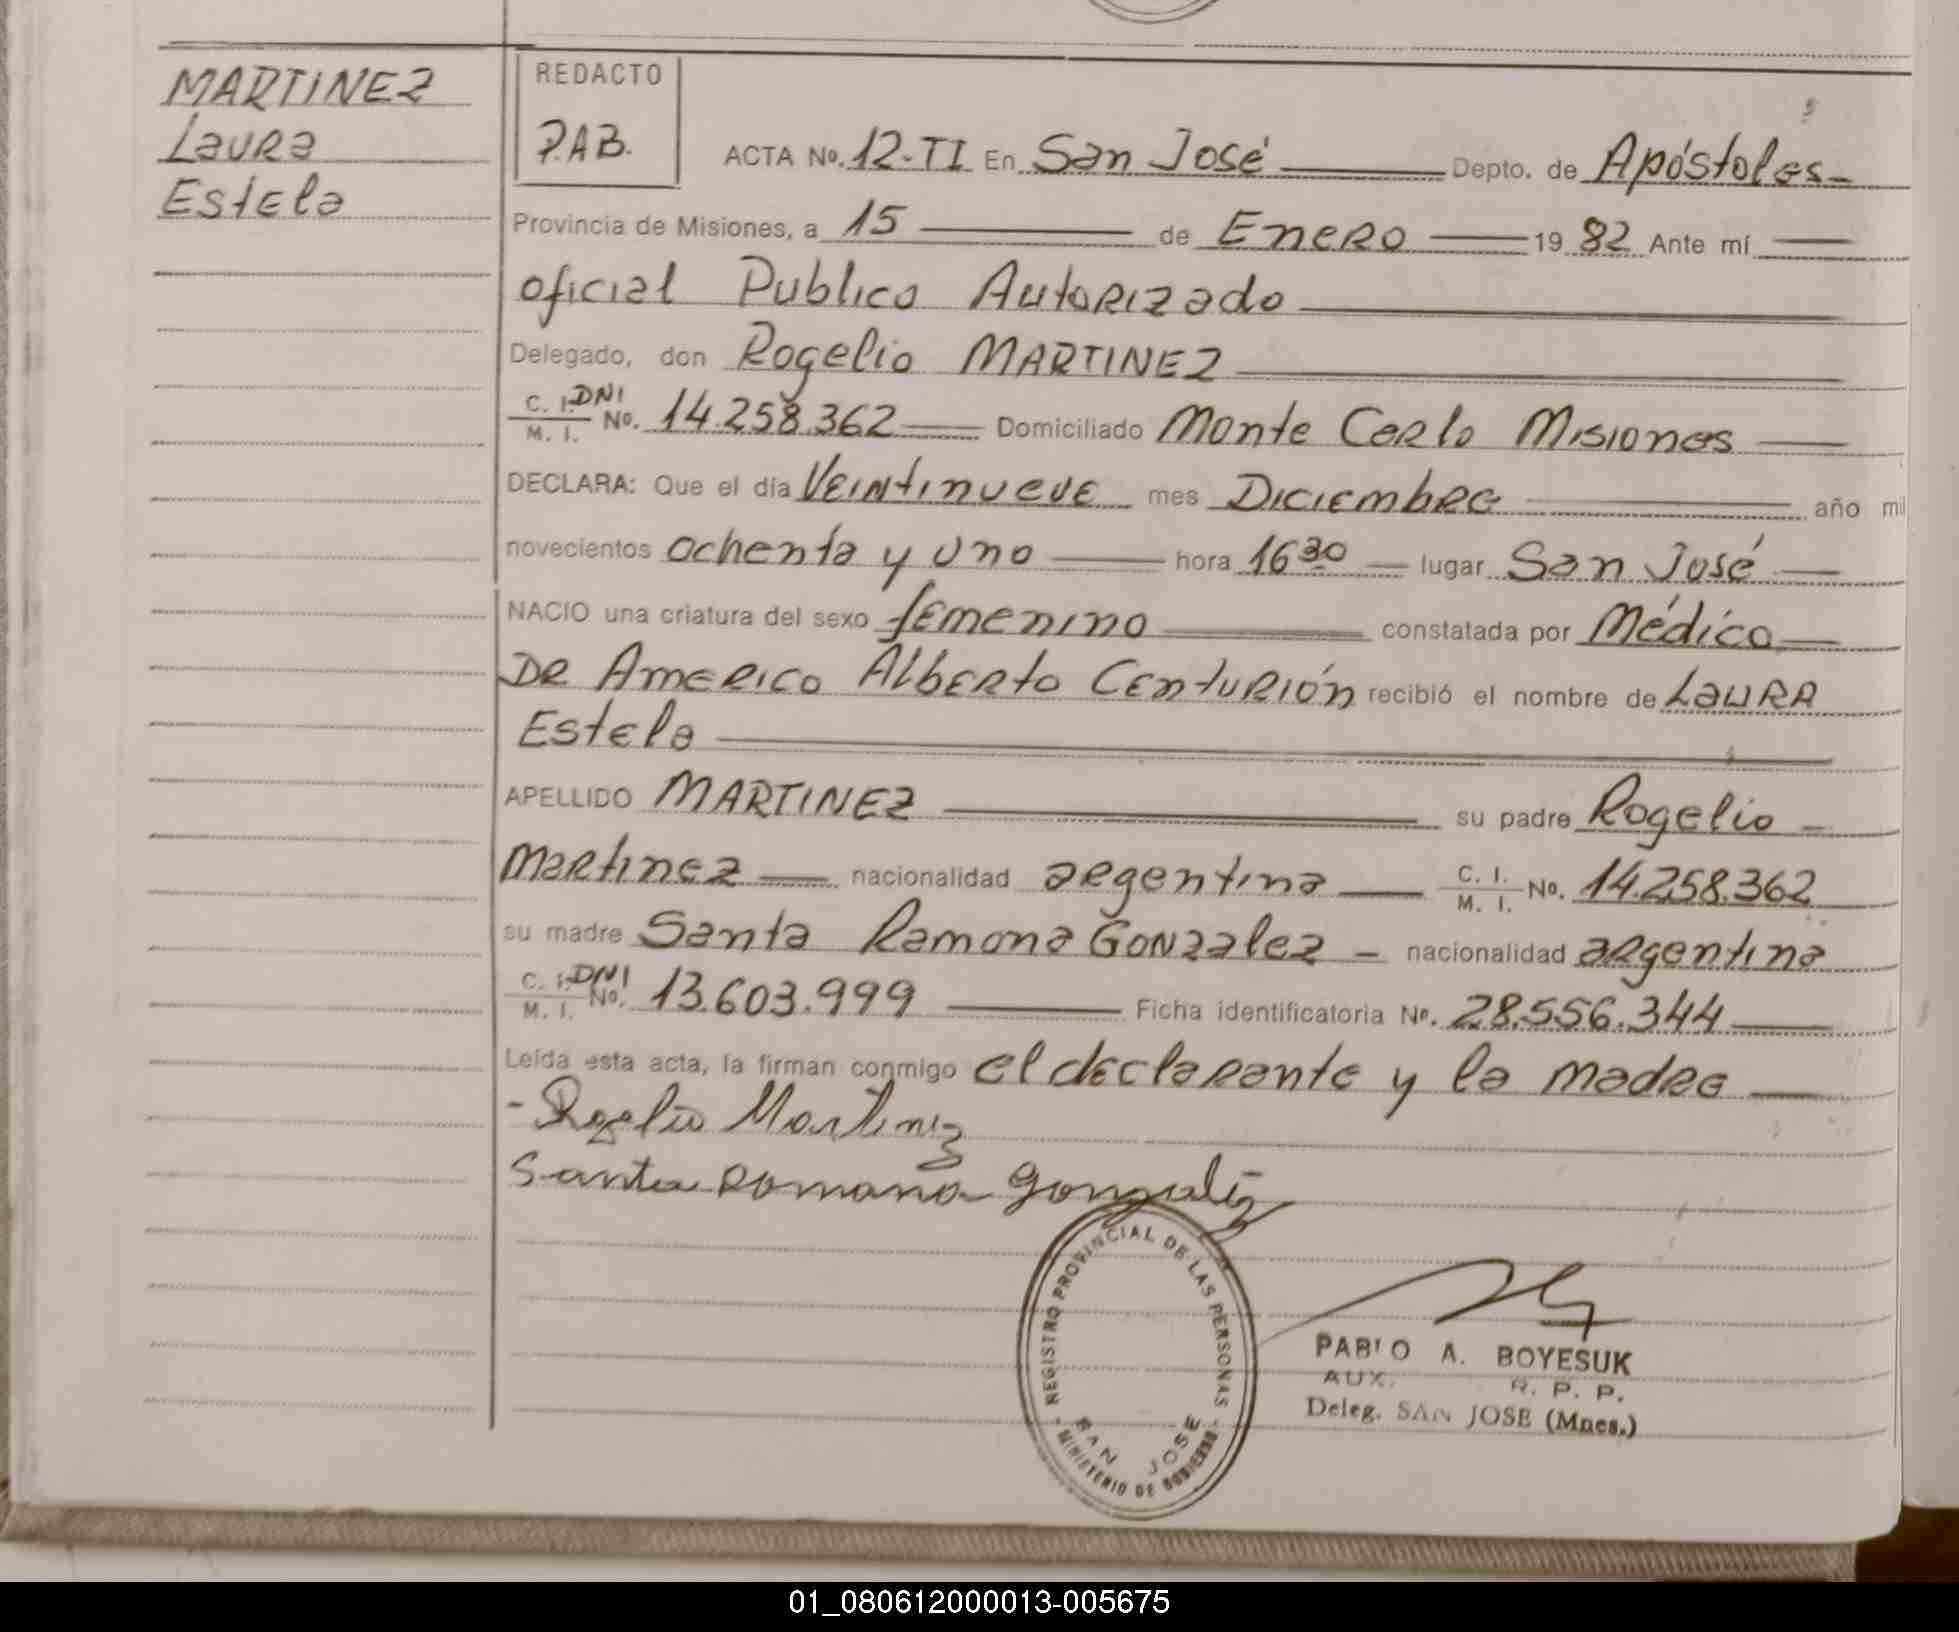 MARTINEZ
Laura
Estela
REDACTO
P.A.B.
ACTA No. 12-TI En San José Depto. de Apóstoles-
Provincia de Misiones, a 15 de Enero 1982 Ante mí
oficial Publico Autorizado
Delegado, don Rogelio MARTINEZ
C. I. DNI
M. I. No. 14.258.362 Domiciliado Monte Carlo Misiones
DECLARA: Que el día Veintinueve mes Diciembre año mil
novecientos ochenta y uno hora 16 30 lugar San José
NACIO una criatura del sexo femenino constatada por Médico
DR Americo Alberto Centurión recibió el nombre de LAURA
Estela
APELLIDO MARTINEZ su padre Rogelio -
Martinez nacionalidad argentina C. I. M. I. No. 14.258.362
su madre Santa Ramona Gonzalez - nacionalidad argentina
C. I. DNI
M. I. No. 13.603.999 Ficha identificatoria No. 28.556.344
Leída esta acta, la firman conmigo el declarante y la madre
- Rogelio Martinez
Santa Romana Gonzalez
REGISTRO PROVINCIAL DE LAS PERSONAS
- MINISTERIO DE GOBIERNO -
SAN JOSE
PABLO A. BOYESUK
AUX. R. P. P.
Deleg. SAN JOSE (Mnes.)
01_080612000013-005675